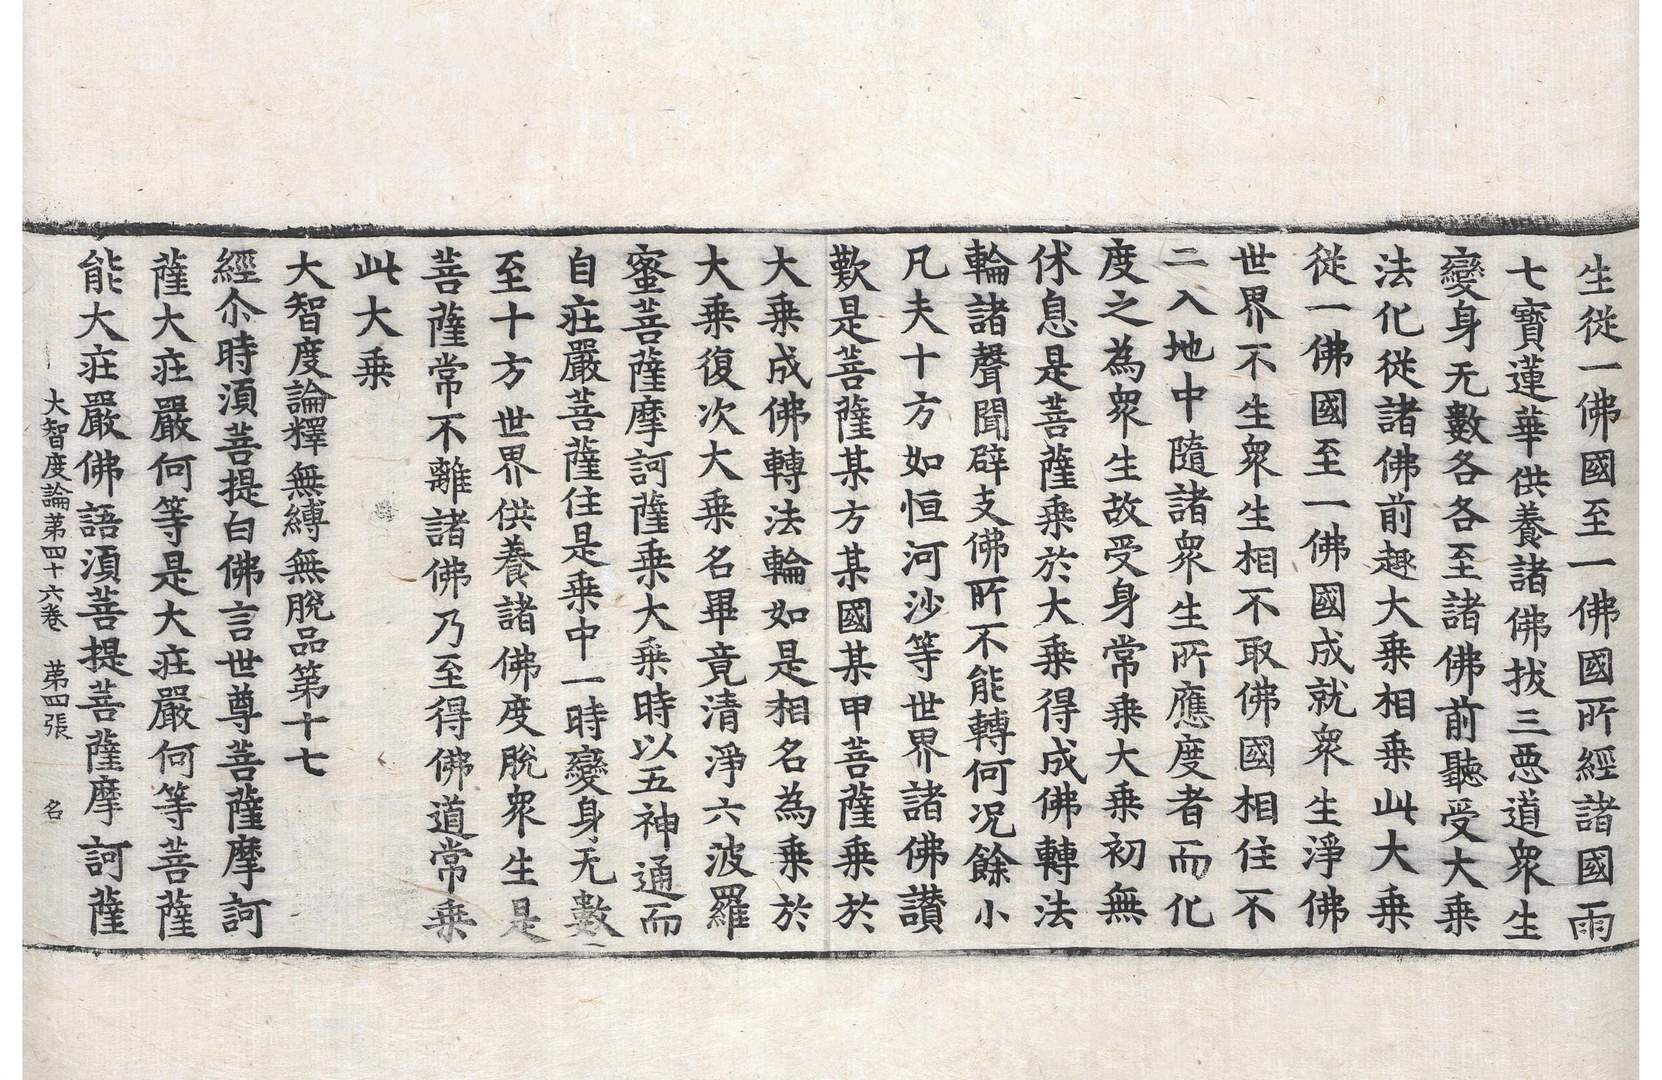 生從一佛國至一佛國所經諸國雨
七寶蓮華供養諸佛拔三惡道眾生
變身无數各各至諸佛前聽受大乘
法化從諸佛前趣大乘相乘此大乘
從一佛國至一佛國成就眾生淨佛
世界不生眾生相不取佛國相住不
二入地中隨諸眾生所應度者而化
度之為眾生故受身常乘大乘初無
休息是菩薩乘於大乘得成佛轉法
輪諸聲聞辟支佛所不能轉何況餘小
凡夫十方如恒河沙等世界諸佛讃
歎是菩薩某方某國某甲菩薩乘於
大乘成佛轉法輪如是相名為乘於
大乘復次大乘名畢竟清淨六波羅
蜜菩薩摩訶薩乘大乘時以五神通而
自疘嚴菩薩住是乘中一時變身无數
至十方世界供養諸佛度脫眾生是
菩薩常不離諸佛乃至得佛道常乘
此大乘
大智度論釋無縛無脫品第十七
經尒時湏菩提白佛言世尊菩薩摩訶
薩大疘嚴何等是大疘嚴何等菩薩
能大疘嚴佛語湏菩提菩薩摩訶薩
大智度論第四十六卷 第四張 名